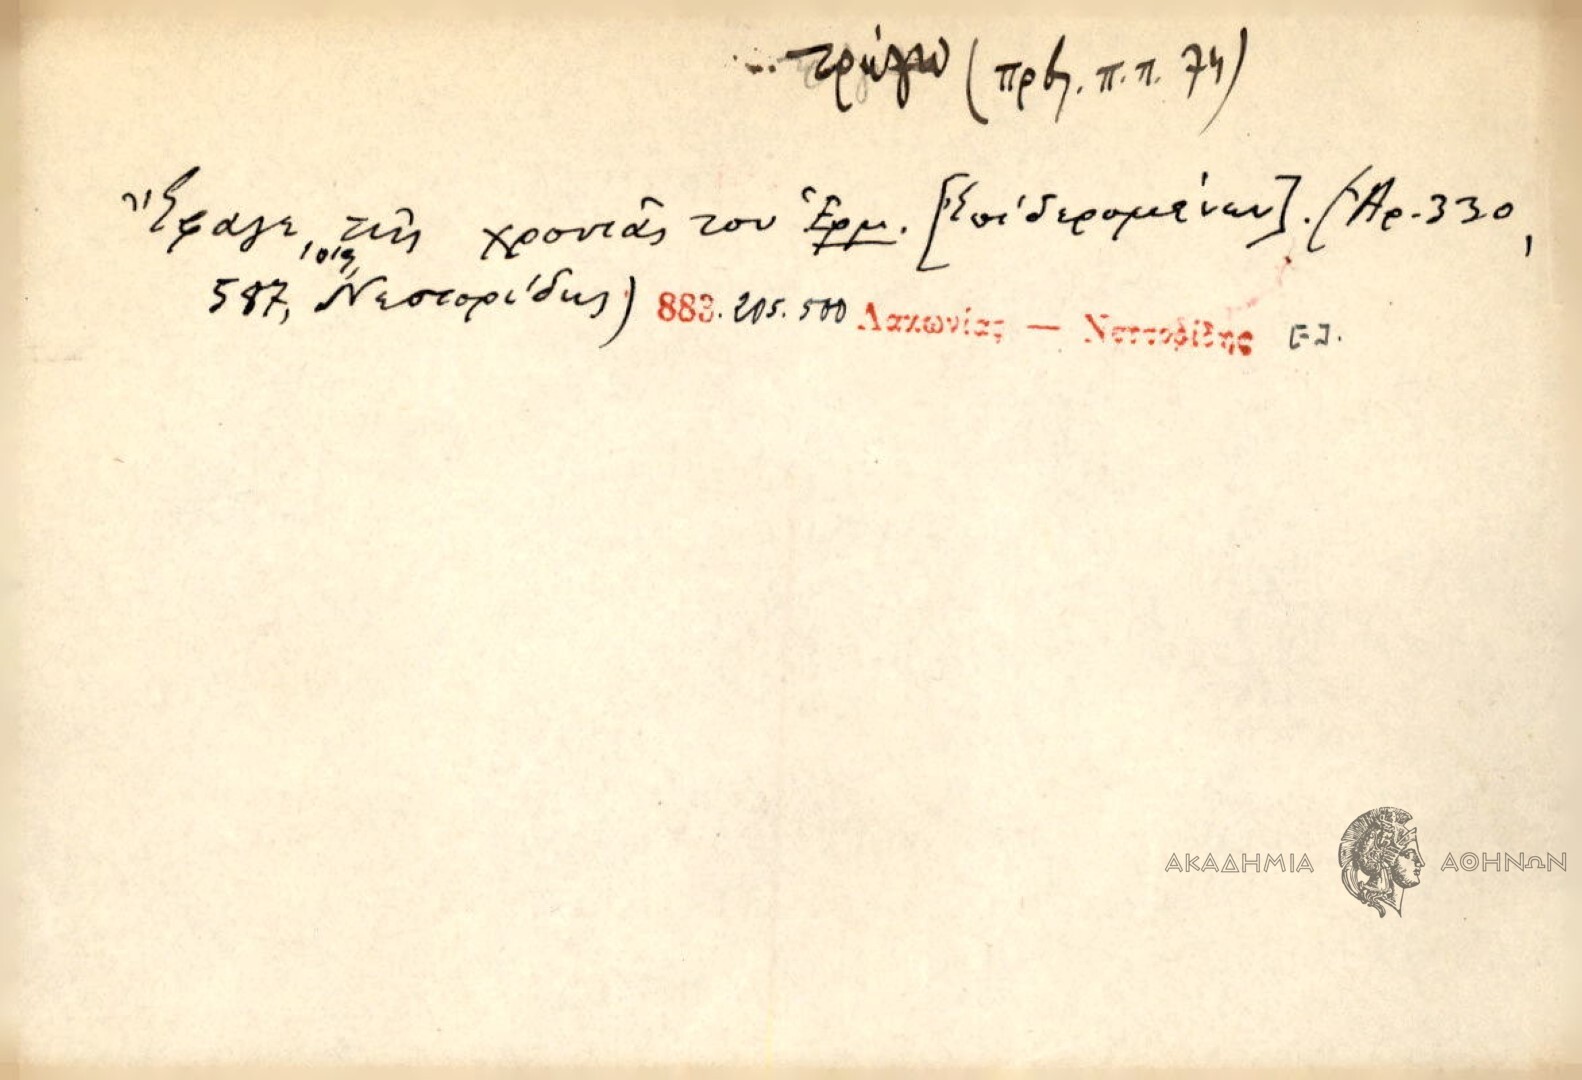 τρώγω (πρβ. π.π. 74)
Ἔφαγε τῆς χρονιᾶς του Ἑρμ. [Ἐπὶ δερομένων]. (Ἀρ. 330,
587, Νεστορίδης) 883. 205. 500 Λακωνίας — Νεστορίδης
ΑΚΑΔΗΜΙΑ ΑΘΗΝΩΝ